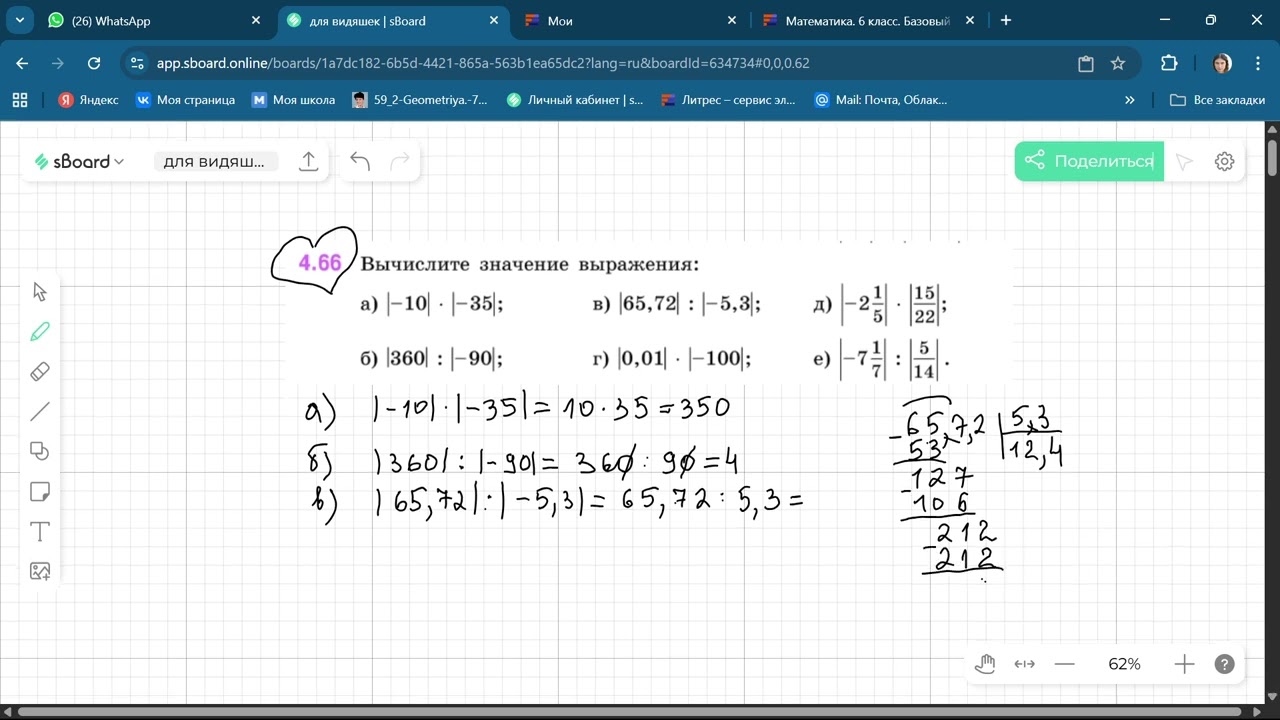 (26) WhatsApp
для видяшек | sBoard
Мои
Математика. 6 класс. Базовый
app.sboard.online/boards/1a7dc182-6b5d-4421-8f5a-563b1ea65dc2?lang=ru&boardId=634734#0,0,0.62
Яндекс Моя страница Моя школа 59_2-Geometriya.-7... Личный кабинет | s... Литрес – сервис эл... Mail: Почта, Облак... » Все закладки
sBoard для видяш... Поделиться
4.66 Вычислите значение выражения:
а) |−10| · |−35|; в) |65,72| : |−5,3|; д) |−2 1/5| · |15/22|;
б) |360| : |−90|; г) |0,01| · |−100|; е) |−7 1/7| : |5/14|.
а) |-10| · |-35| = 10 · 35 = 350
б) |360| : |-90| = 360 : 90 = 4
в) |65,72| : |-5,3| = 65,72 : 5,3 =
65,7,2 5,3
53 12,4
127
106
212
212
62%